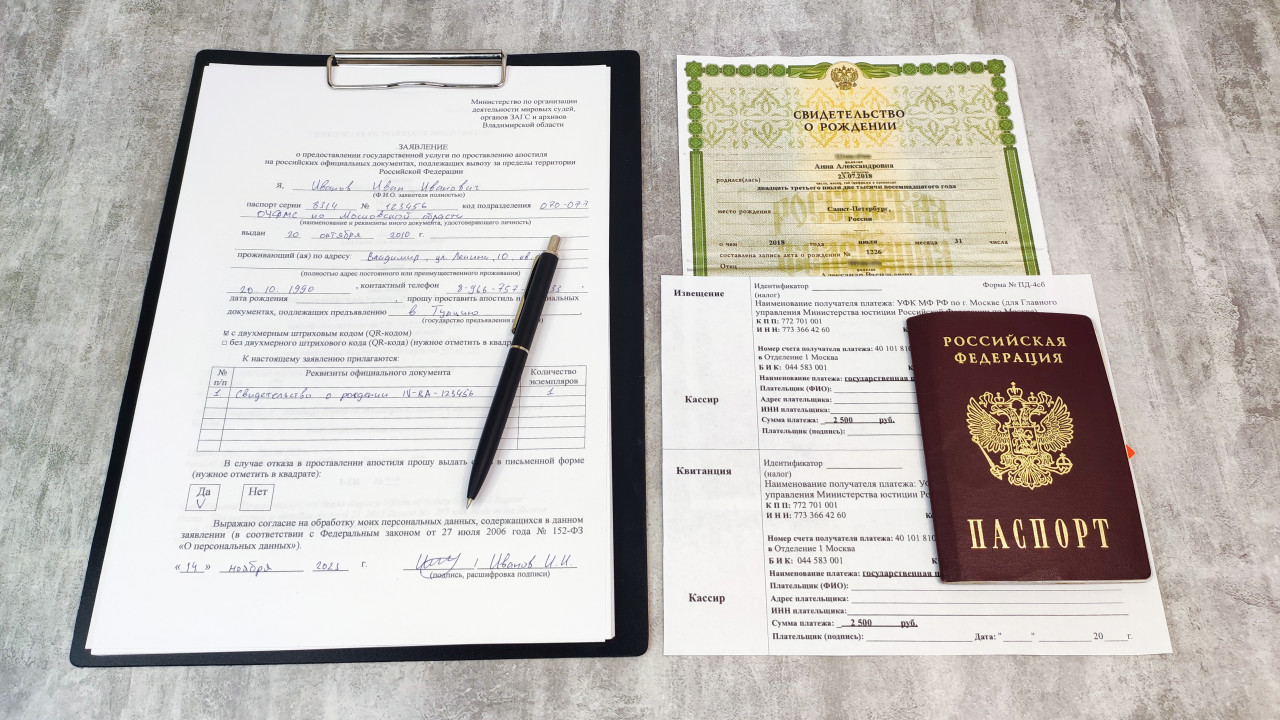 Министерство по организации
деятельности мировых судей,
органов ЗАГС и архивов
Владимирской области
ЗАЯВЛЕНИЕ
о предоставлении государственной услуги по проставлению апостиля
на российских официальных документах, подлежащих вывозу за пределы территории
Российской Федерации
Я, Иванов Иван Иванович
(Ф.И.О. заявителя полностью)
паспорт серии 8314 № 123456 код подразделения 070-077
ОУФМС по Московской области
(наименование и реквизиты иного документа, удостоверяющего личность)
выдан 20 октября 2010 г.
проживающий (ая) по адресу: Владимир, ул. Ленина, 10, кв.
(полностью адрес постоянного или преимущественного проживания)
20. 10. 1990, контактный телефон 8-966-757-
дата рождения , прошу проставить апостиль на
документах, подлежащих предъявлению в Турцию
(государство предъявления
с двухмерным штриховым кодом (QR-кодом)
без двухмерного штрихового кода (QR-кода) (нужное отметить в
К настоящему заявлению прилагаются:
№ п/п Реквизиты официального документа Количество экземпляров
1 Свидетельство о рождении IV-ВА-123456 1
В случае отказа в проставлении апостиля прошу выдать в письменной форме
(нужное отметить в квадрате):
Да Нет
Выражаю согласие на обработку моих персональных данных, содержащихся в данном
заявлении (в соответствии с Федеральным законом от 27 июля 2006 года № 152-ФЗ
«О персональных данных»).
«14» ноября 2021 г. Иванов И.И.
(подпись, расшифровка подписи)
СВИДЕТЕЛЬСТВО
О РОЖДЕНИИ
фамилия
Анна Александровна
имя, отчество
родился(лась) 23.07.2018
число, месяц, год (цифрами и прописью)
двадцать третьего июля две тысячи восемнадцатого года
место рождения Санкт-Петербург,
Россия
о чем 2018 года июля месяца 31 числа
составлена запись акта о рождении № 1226
Отец
Извещение
Кассир
Идентификатор
(налог)
Форма № ПД-4сб
Наименование получателя платежа: УФК МФ РФ по г. Москве (для Главного
управления Министерства юстиции Российской Федерации по Москве)
КПП: 772 701 001
ИНН: 773 366 42 60
Номер счета получателя платежа: 40 101 810
в Отделение 1 Москва
БИК: 044 583 001
Наименование платежа: государственная
Плательщик (ФИО):
Адрес плательщика:
ИНН плательщика:
Сумма платежа: 2 500 руб.
Плательщик (подпись):
Квитанция
Кассир
Идентификатор
(налог)
Наименование получателя платежа:
управления Министерства юстиции
КПП: 772 701 001
ИНН: 773 366 42 60
Номер счета получателя платежа: 40 101 810
в Отделение 1 Москва
БИК: 044 583 001
Наименование платежа: государственная
Плательщик (ФИО):
Адрес плательщика:
ИНН плательщика:
Сумма платежа: 2 500 руб.
Плательщик (подпись): Дата: "      " 20 г.
РОССИЙСКАЯ
ФЕДЕРАЦИЯ
ПАСПОРТ